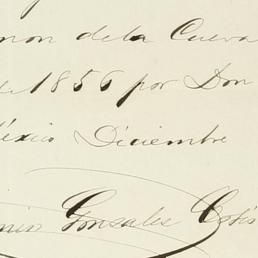 mon de la Cueva
de 1856 por Don
México Diciembre
onio Gonzales Cosio